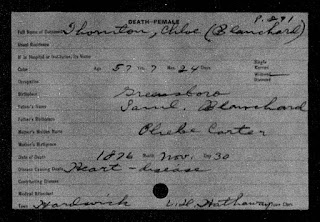 P. 291
DEATH-FEMALE
Full Name of Deceased Thornton, Chloe (Blanchard)
If in Hospital or Institution, its Name
Color Age 57 Yrs. 7 Mos. 24 Days Single Married Widowed Divorced
Occupation
Birthplace Greensboro
Father's Name Saml. Blanchard
Father's Birthplace
Mother's Maiden Name Phebe Carter
Mother's Birthplace
Date of Death 1876 Month Nov. Day 30
Disease Causing Death Heart-disease
Contributing Disease
Medical Attendant
Town Hardwick Hathaway Town Clerk